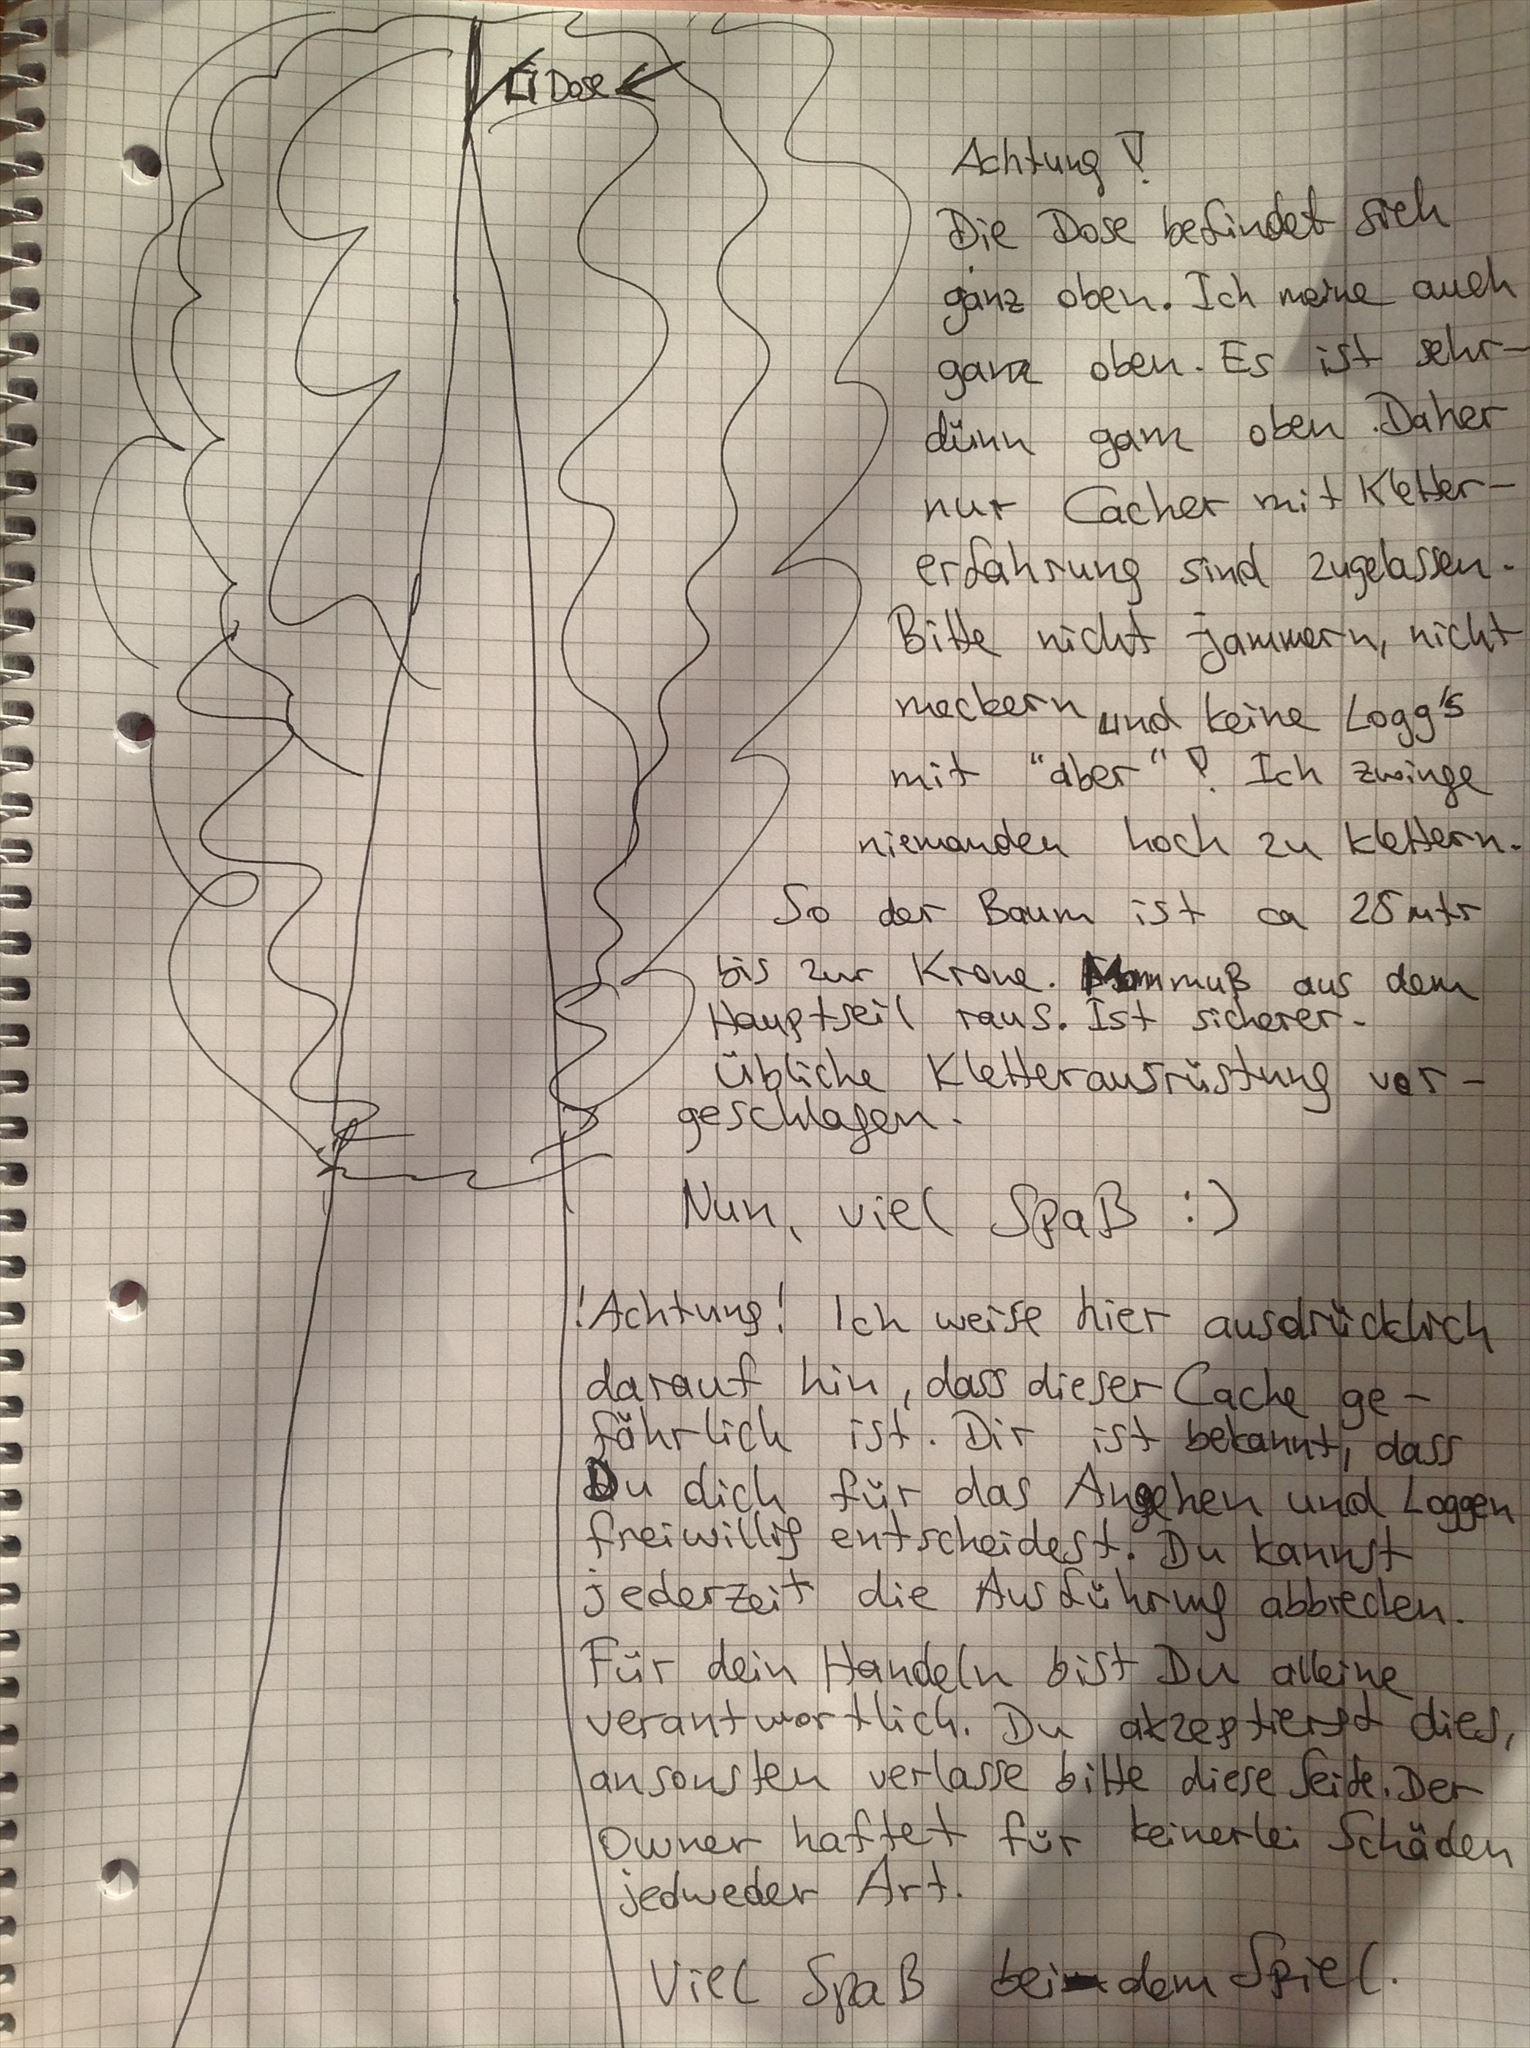 Dose
Achtung!
Die Dose befindet sich
ganz oben. Ich meine auch
ganz oben. Es ist sehr-
dünn ganz oben. Daher
nur Cacher mit Kletter-
erfahrung sind zugelassen.
Bitte nicht jammern, nicht
meckern und keine Logg's
mit "aber"! Ich zwinge
niemanden hoch zu klettern.
So der Baum ist ca 25 mtr
bis zur Krone. Man muß aus dem
Hauptseil raus. Ist sicherer.
Übliche Kletterausrüstung vor-
geschlagen.
Nun, viel Spaß :)
!Achtung! Ich weise hier ausdrücklich
darauf hin, dass dieser Cache ge-
fährlich ist. Dir ist bekannt, dass
Du dich für das Angehen und Loggen
freiwillig entscheidest. Du kannst
jederzeit die Ausführung abbrechen.
Für dein Handeln bist Du alleine
verantwortlich. Du akzeptierst dies,
ansonsten verlasse bitte diese Seite. Der
Owner haftet für keinerlei Schäden
jedweder Art.
Viel Spaß bei dem Spiel.